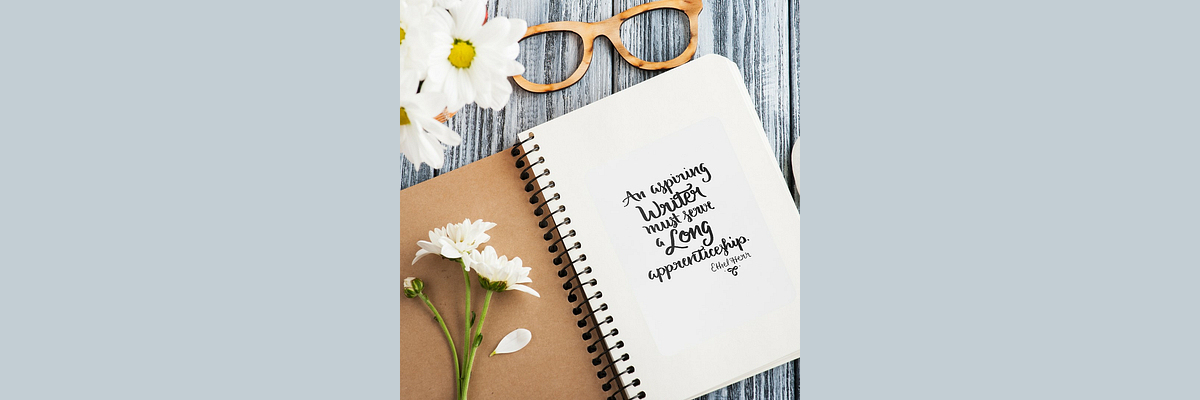 An aspiring
Writer
must serve
a Long
apprenticeship.
Ethel Herr